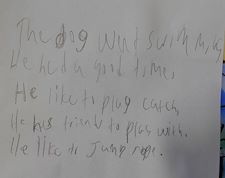 The dog went swimming
He had a good time.
He like to play catch,
He has friend to play with.
He like to jump rope.